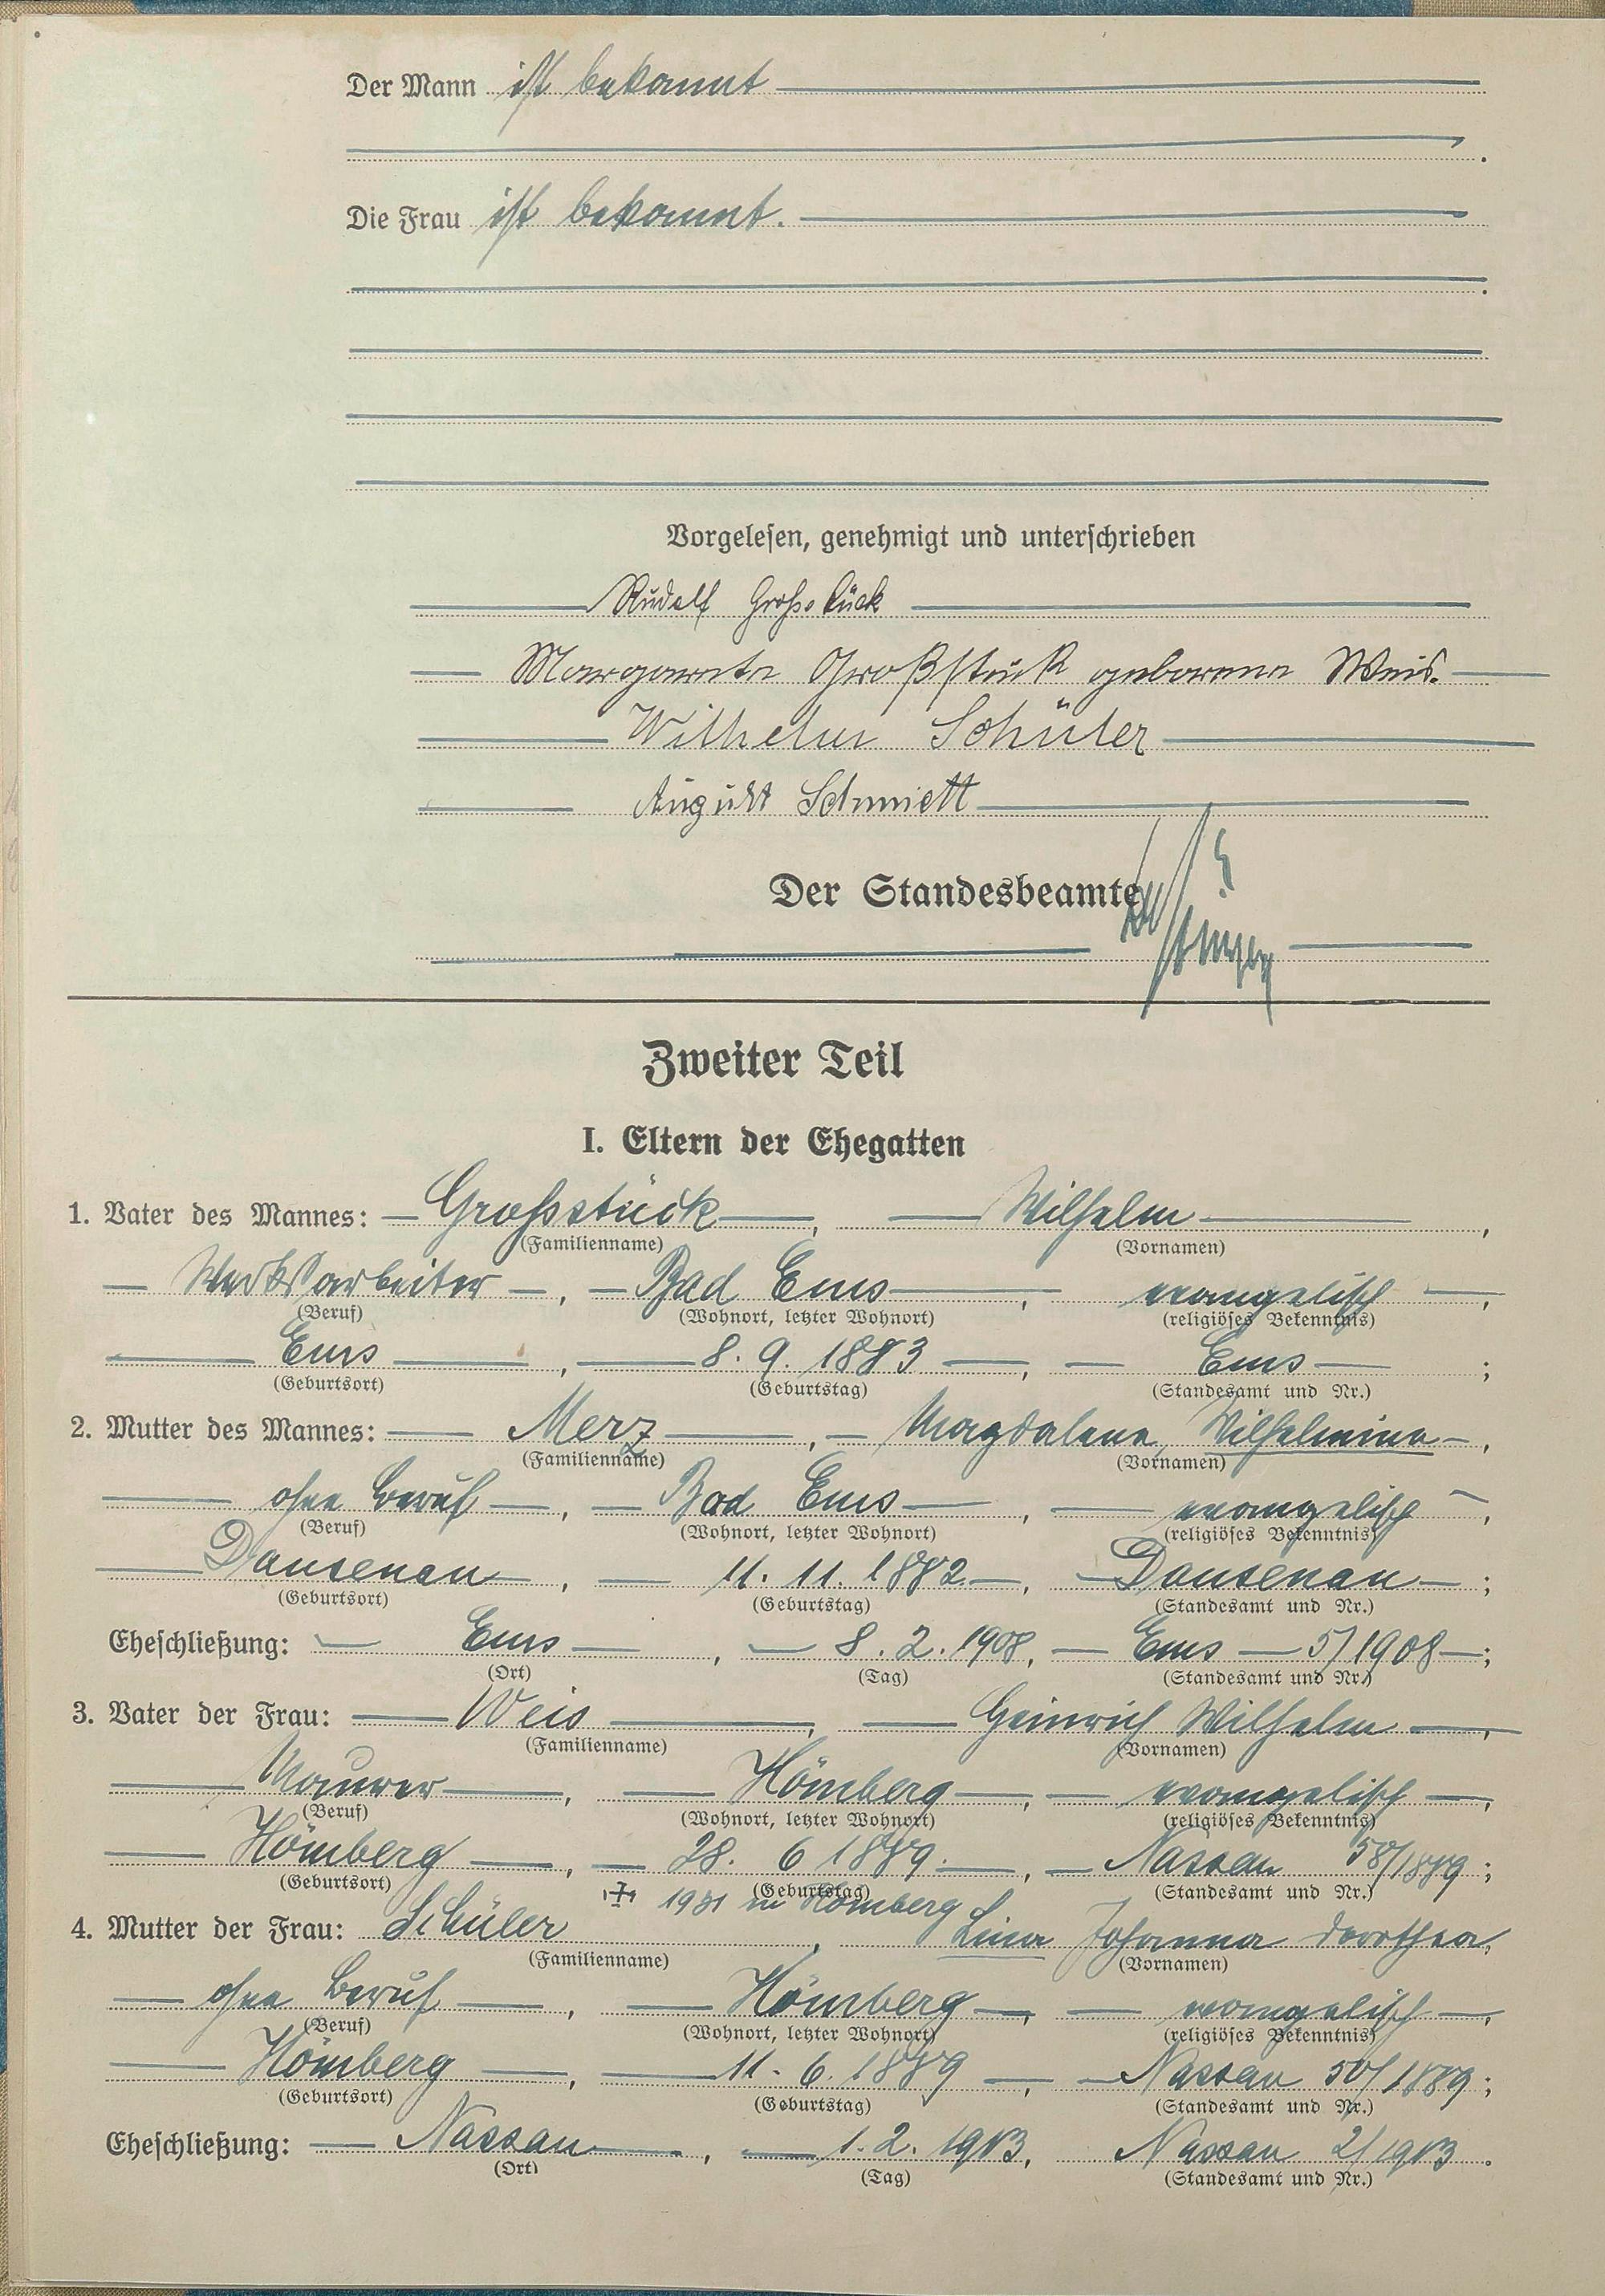 Der Mann ist bekannt
Die Frau ist bekannt.
Vorgelesen, genehmigt und unterschrieben
Rudolf Grossstück
Margarete Großstück geborene Weis.
Wilhelm Schüler
August Schmidt
Der Standesbeamte
Zweiter Teil
I. Eltern der Ehegatten
1. Vater des Mannes: Grossstück, Wilhelm,
(Familienname) (Vornamen)
Werksarbeiter, Bad Ems, evangelisch,
(Beruf) (Wohnort, letzter Wohnort) (religiöses Bekenntnis)
Ems, 8. 9. 1883, Ems;
(Geburtsort) (Geburtstag) (Standesamt und Nr.)
2. Mutter des Mannes: Merz, Magdalena, Wilhelmina,
(Familienname) (Vornamen)
ohne Beruf, Bad Ems, evangelisch,
(Beruf) (Wohnort, letzter Wohnort) (religiöses Bekenntnis)
Dausenau, 11. 11. 1882, Dausenau;
(Geburtsort) (Geburtstag) (Standesamt und Nr.)
Eheschließung: Ems, 8. 2. 1908, Ems 5/1908;
(Ort) (Tag) (Standesamt und Nr.)
3. Vater der Frau: Weis, Heinrich Wilhelm,
(Familienname) (Vornamen)
Maurer, Hömberg, evangelisch,
(Beruf) (Wohnort, letzter Wohnort) (religiöses Bekenntnis)
Hömberg, 28. 6 1889, Nassau 58/1889;
(Geburtsort) (Geburtstag) (Standesamt und Nr.)
1931 in Hömberg
4. Mutter der Frau: Schüler, Lina Johanna Dorothea,
(Familienname) (Vornamen)
ohne Beruf, Hömberg, evangelisch,
(Beruf) (Wohnort, letzter Wohnort) (religiöses Bekenntnis)
Hömberg, 11. 6. 1889, Nassau 50/1889;
(Geburtsort) (Geburtstag) (Standesamt und Nr.)
Eheschließung: Nassau, 1. 2. 1913, Nassau 2/1913.
(Ort) (Tag) (Standesamt und Nr.)